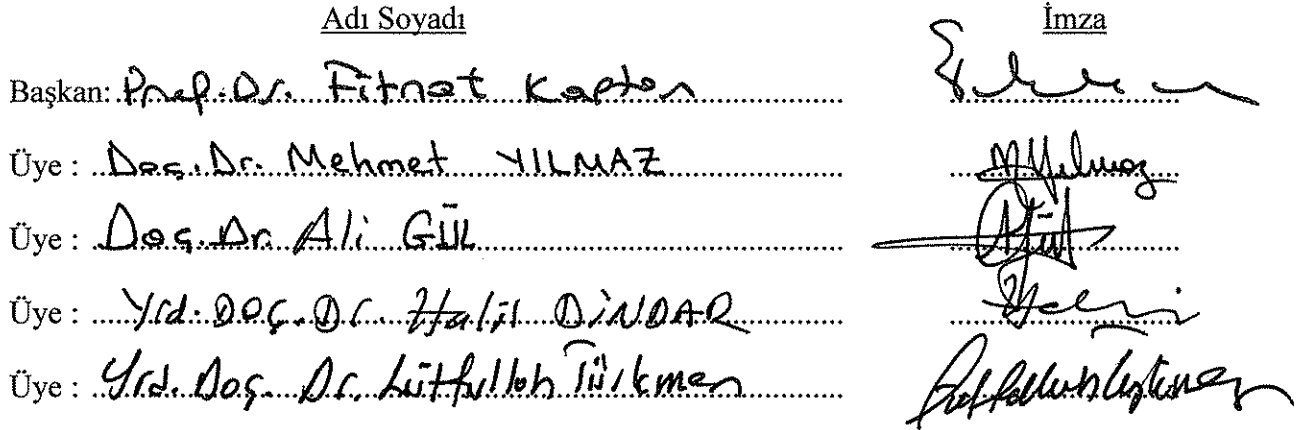 Adı Soyadı İmza
Başkan: Prof. Dr. Fitnat Kaptan
Üye : Doç. Dr. Mehmet YILMAZ M Yılmaz
Üye : Doç. Dr. Ali GÜL
Üye : Yrd. Doç. Dr. Halil DİNDAR
Üye : Yrd. Doç. Dr. Lütfullah Türkmen